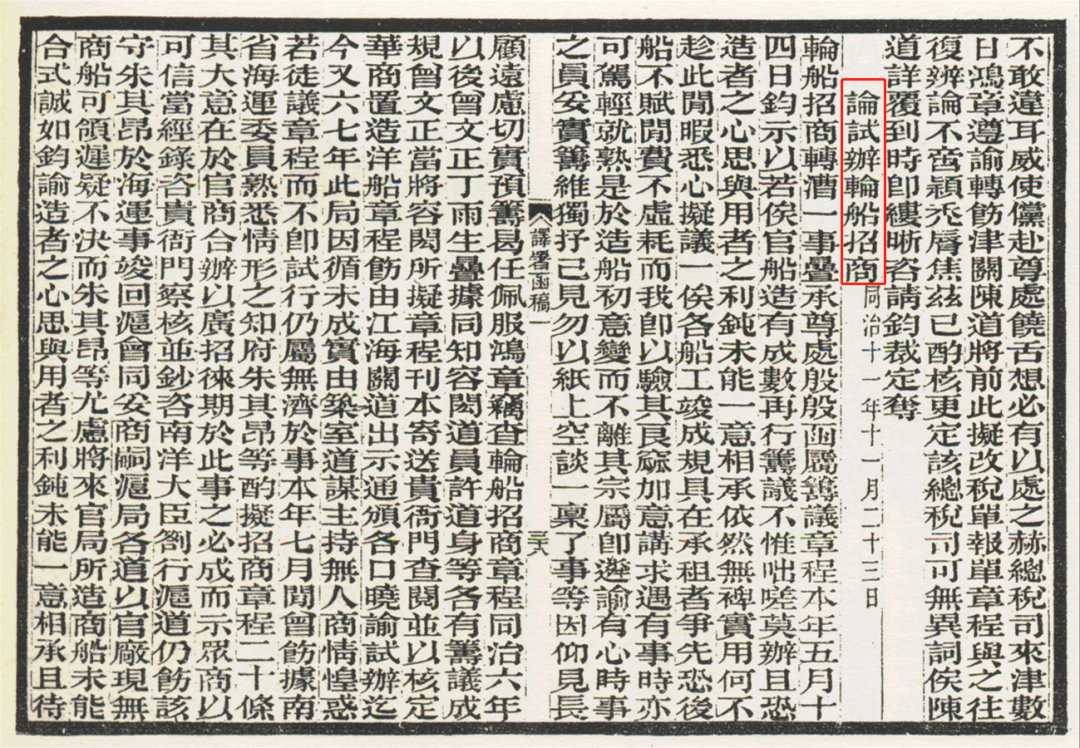 不敢違耳威使儻赴尊處饒舌想必有以處之赫總稅司來津數
日鴻章遵諭轉飭津關陳道將前此擬改稅單報單章程與之往
復辦論不啻穎禿脣焦茲已酌核更定該總稅司可無異詞俟陳
道詳覆到時卽縷晰咨請鈞裁定奪
論試辦輪船招商同治十一年十一月二十三日
輪船招商轉漕一事疊承尊處殷殷函屬籌議章程本年五月十
四日鈞示以若俟官船造有成數再行籌議不惟咄嗟莫辦且恐
造者之心思與用者之利鈍未能一意相承依然無裨實用何不
趁此閒暇悉心擬議一俟各船工竣成規具在承租者爭先恐後
船不賦閒費不虛耗而我卽以驗其良窳加意講求遇有事時亦
可駕輕就熟是於造船初意變而不離其宗屬卽遴諭有心時事
之員妥實籌維獨抒己見勿以紙上空談一稟了事等因仰見長
譯署函稿一
三十八
顧遠慮切實預籌曷任佩服鴻章竊查輪船招商章程同治六年
以後曾文正丁雨生疊據同知容閎道員許道身等各有籌議成
規曾文正當將容閎所擬章程刊本寄送貴衙門查閱並以核定
華商置造洋船章程飭由江海關道出示通頒各口曉諭試辦迄
今又六七年此局因循未成實由築室道謀主持無人商情惶惑
若徒議章程而不卽試行仍屬無濟於事本年七月閒曾飭據南
省海運委員熟悉情形之知府朱其昂等酌擬招商章程二十條
其大意在於官商合辦以廣招徠期於此事之必成而示眾商以
可信當經錄咨貴衙門察核並鈔咨南洋大臣劄行滬道仍飭該
守朱其昂於海運事竣回滬會同妥商嗣滬局各道以官廠現無
商船可領遲疑不決而朱其昂等尤慮將來官局所造商船未能
合式誠如鈞諭造者之心思與用者之利鈍未能一意相承且待